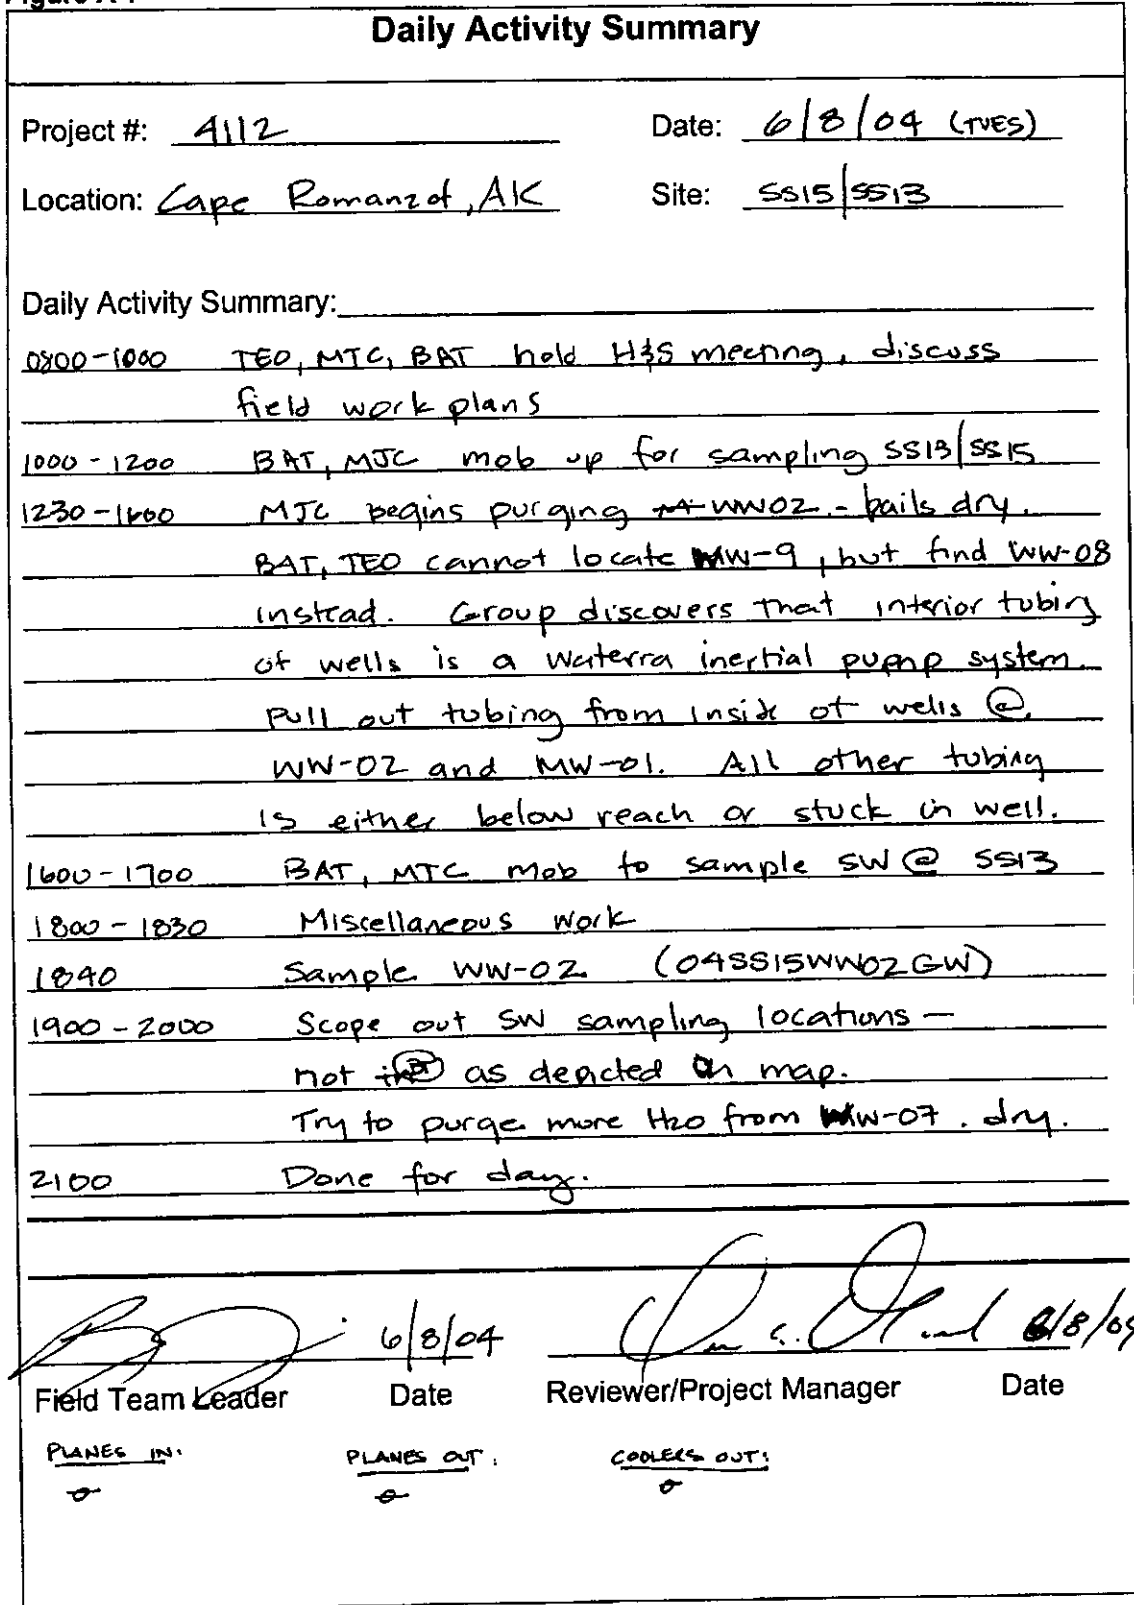 Daily Activity Summary
Project #: 4112 Date: 6/8/04 (TUES)
Location: Cape Romanzof, AK Site: SS15/SS13
Daily Activity Summary:
0800-1000 TEO, MJC, BAT hold H&S meeting, discuss
field work plans
1000-1200 BAT, MJC mob up for sampling SS13/SS15
1230-1600 MJC begins purging WW02 - bails dry.
BAT, TEO cannot locate MW-9, but find WW-08
instead. Group discovers that interior tubing
of wells is a Waterra inertial pump system.
Pull out tubing from inside of wells @
WW-02 and MW-01. All other tubing
is either below reach or stuck in well.
1600-1700 BAT, MJC mob to sample SW @ SS13
1800-1830 Miscellaneous work
1840 Sample WW-02. (04SS15WW02GW)
1900-2000 Scope out SW sampling locations -
not as depicted on map.
Try to purge more H2O from MW-07. dry.
2100 Done for day.
6/8/04 6/8/04
Field Team Leader Date Reviewer/Project Manager Date
PLANES IN: PLANES OUT: COOLERS OUT:
0 0 0